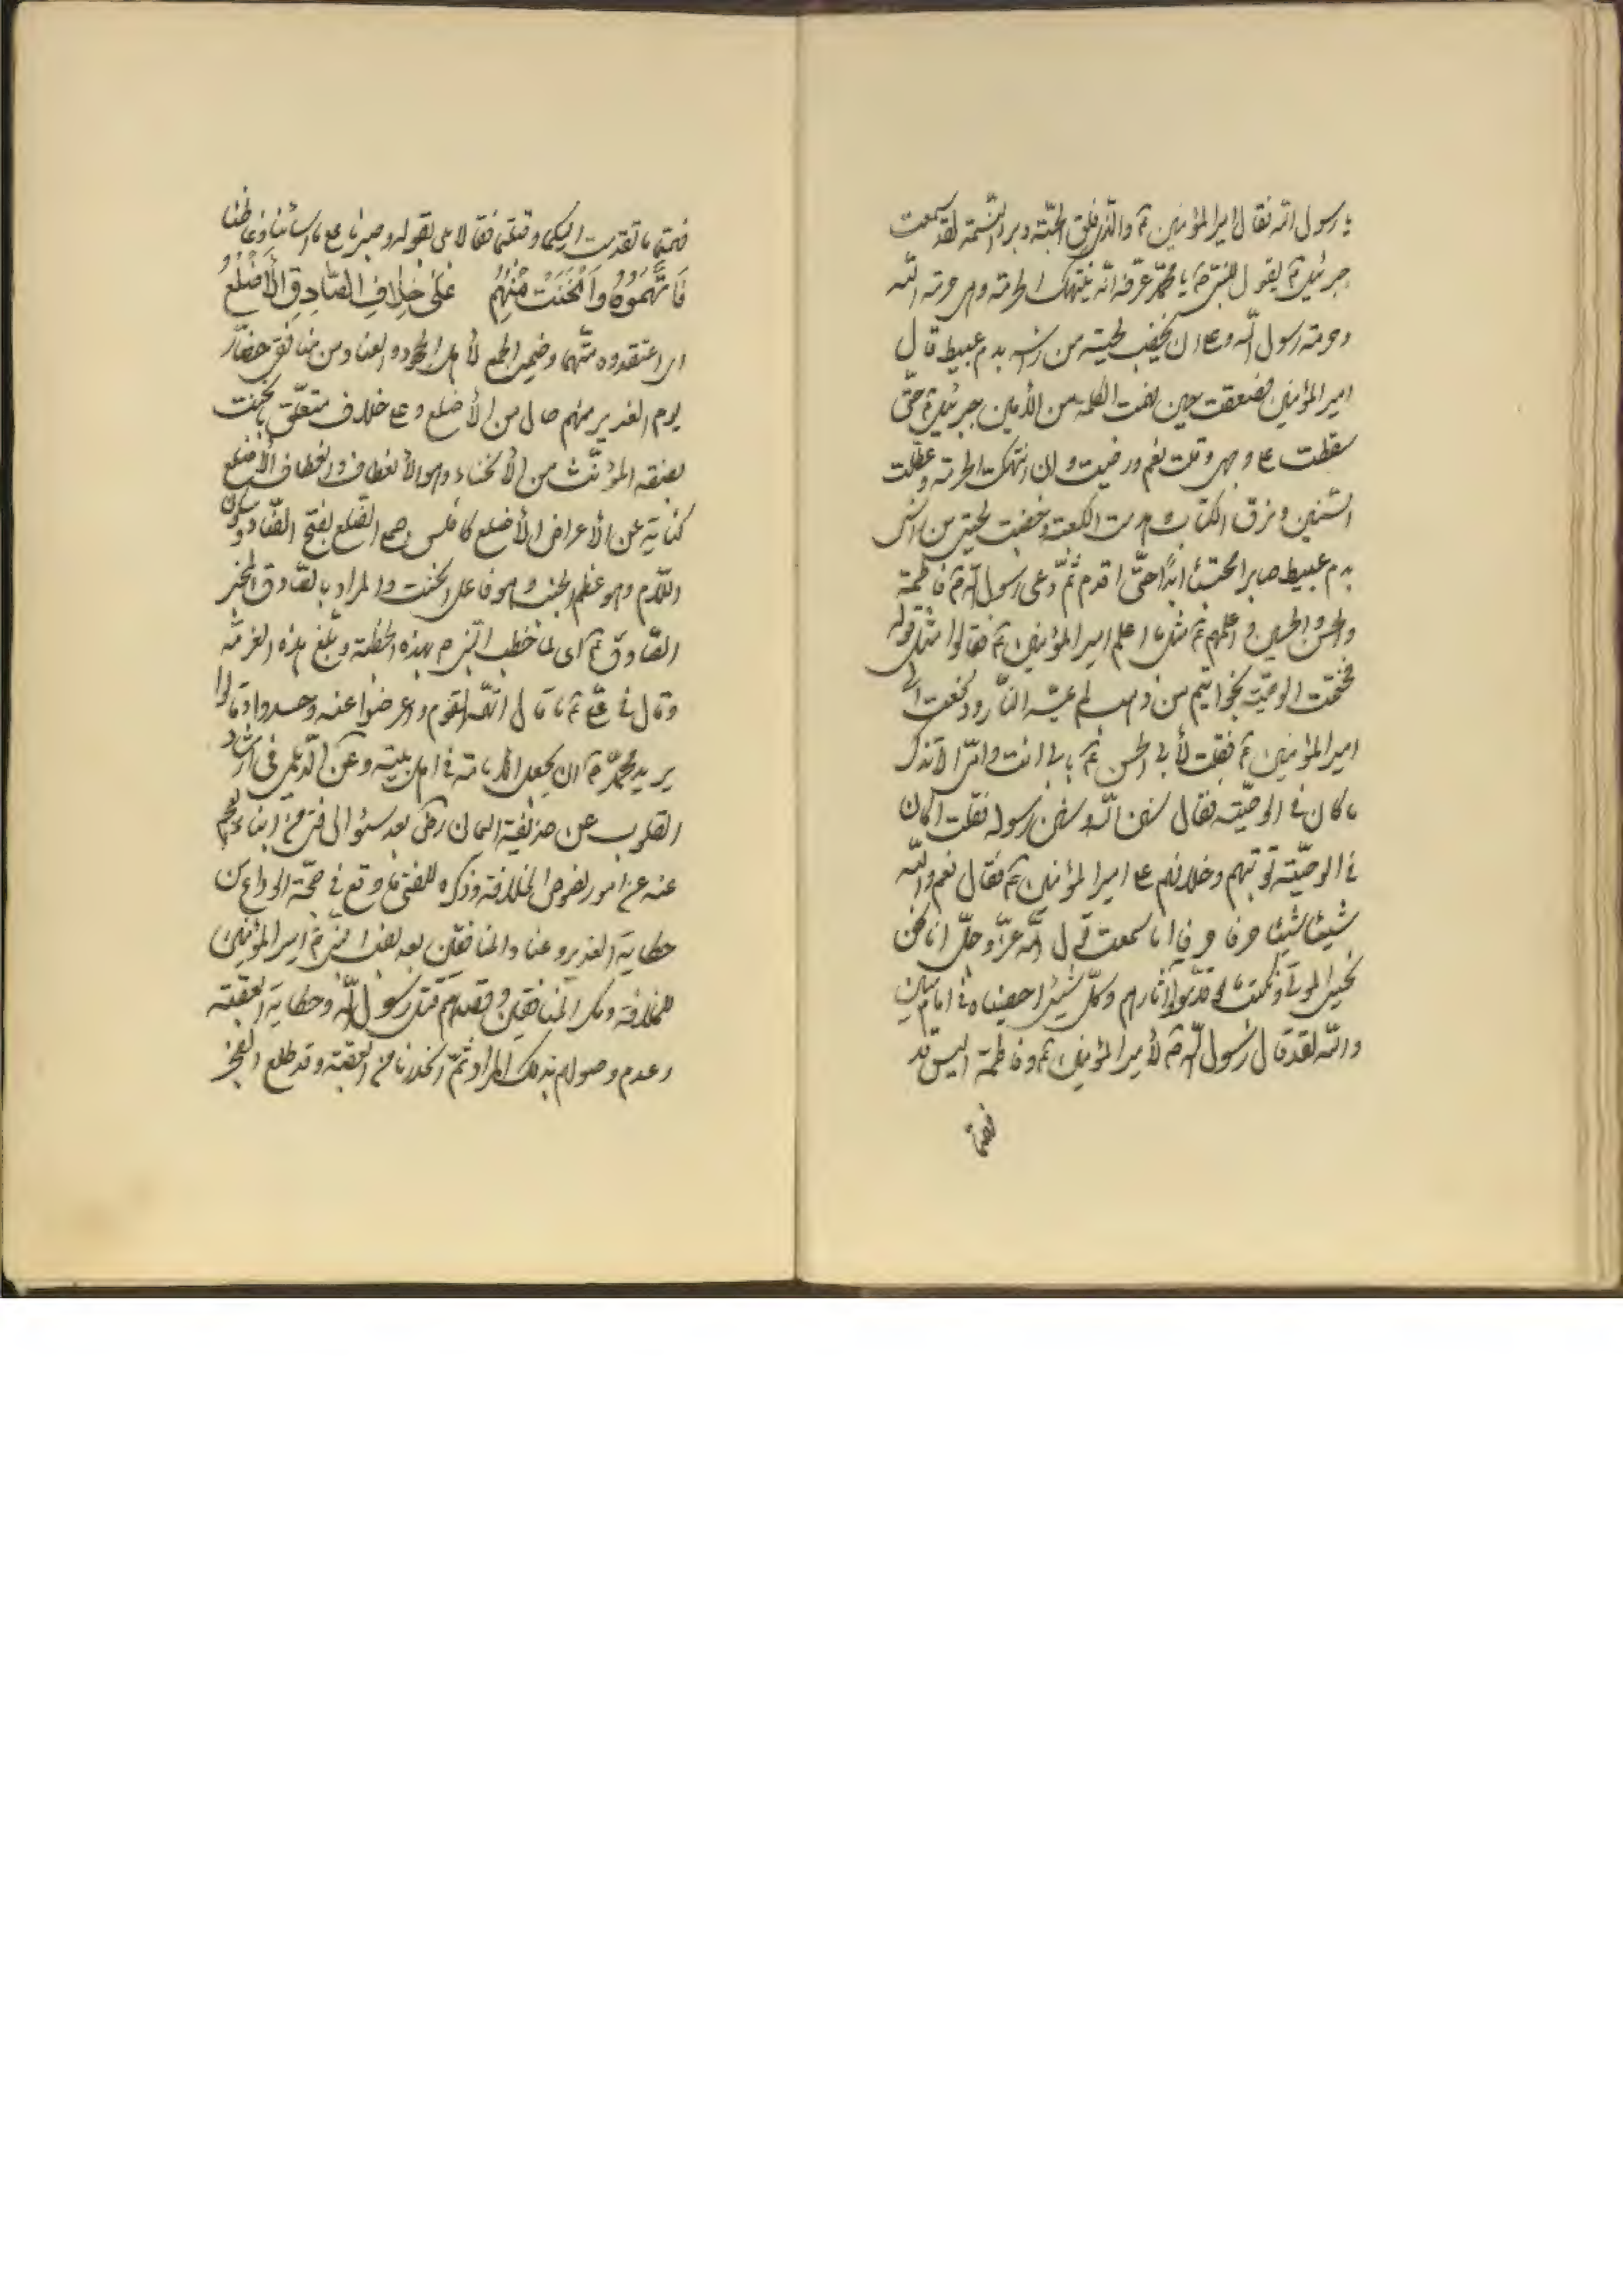 يا رسول الله فقال امير المؤمنين ع والذي فلق الحبّة وبرء النّسمة لقد سمعت
جبرئيل ع يقول للنبي ص يا محمّد عرّفه انّه ينتهك الحرمة وهي حرمة الله
وحرمة رسول الله وعلى ان يخضب لحيته من راسه بدم عبيط قال
امير المؤمنين فصعقت حين فهمت الكلمة من الأمين جبرئيل ع حتّى
سقطت على وجهي وقلت نعم ورضيت وان انتهكت الحرمة وعطّلت
السّنن ومزق الكتاب وهدمت الكعبة وخضبت لحيتي من راسي
بدم عبيط صابرا محتسبا ابدًا حتّى اقدم ثمّ دعى رسول الله ص فاطمة
والحسن والحسين و اعلمهم ع مثل ما اعلم امير المؤمنين ع فقالوا مثل قوله
فختمت الوصيّة بخواتيم من ذهب لم تمسّه النّار ودفعت الى
امير المؤمنين ع فقلت لأبي الحسن ع بابي انت وامّي الا تذكر
ما كان في الوصيّة فقال سنن الله وسنن رسوله فقلت اكان
في الوصيّة توثبهم وخلافهم على امير المؤمنين ع فقال نعم والله
شيئا شيئا حرفا حرفا اما سمعت قول الله عزّ وجلّ انا نحن
نحيي الموتى ونكتب ما قدّموا وآثارهم وكلّ شيئ احصيناه في امام مبين
والله لقد قال رسول الله ص لأمير المؤمنين ع وفاطمة اليس قد
فهمتما
فهمتما ما تقدمت اليكما وقبلتما فقالا بلى بقبوله وصبرنا على ما سائنا وغاظنا
فَاتَّهَمُوهُ وَانْحَنَتْ مِنْهُمُ عَلىٰ خِلافِ الصّادِقِ الأَضْلُعُ
اى اعتقدوه متّهما وضمير الجمع لأهل الجحود والعناد من منافقى حضّار
يوم الغدير منهم حال من الأضلع وعلى خلاف متعلّق بانحنت
بصيغة المؤنّث من الأنحناء وهو الأنعطاف وانعطاف الأضلع
كناية عن الأعراض الأضلع كافلس جمع الضلع بفتح الضّاد وسكون
اللّام وهو عظم الجنب وهو فاعل انحنت والمراد بالصّادق المخبر
الصّادق ص اى لمّا خطب النّبي ص بهذه الخطبة وبلغ هذه المرتبة
وقال في علي ع ما قال اتّهمه القوم واعرضوا عنه وحسدوا وقالوا
يريد محمّد ص ان يجعل الامامة في اهل بيته وعن الدّيلمى فى ارشاد
القلوب عن حذيفة اليمانى رض بعد سئوال فتى من ابناء العجم
عنه عن امور لغوض الخلافة وذكره للفتى ما وقع في حجّة الوداع من
حكاية الغدير وعناد المنافقين بعد نصب النبي ص امير المؤمنين
للخلافة ومكر المنافقين وقصدهم قتل رسول الله وحكاية العقبة
وعدم وصولهم بذلك المراد ثمّ انحدرنا من العقبة وقد طلع الفجر